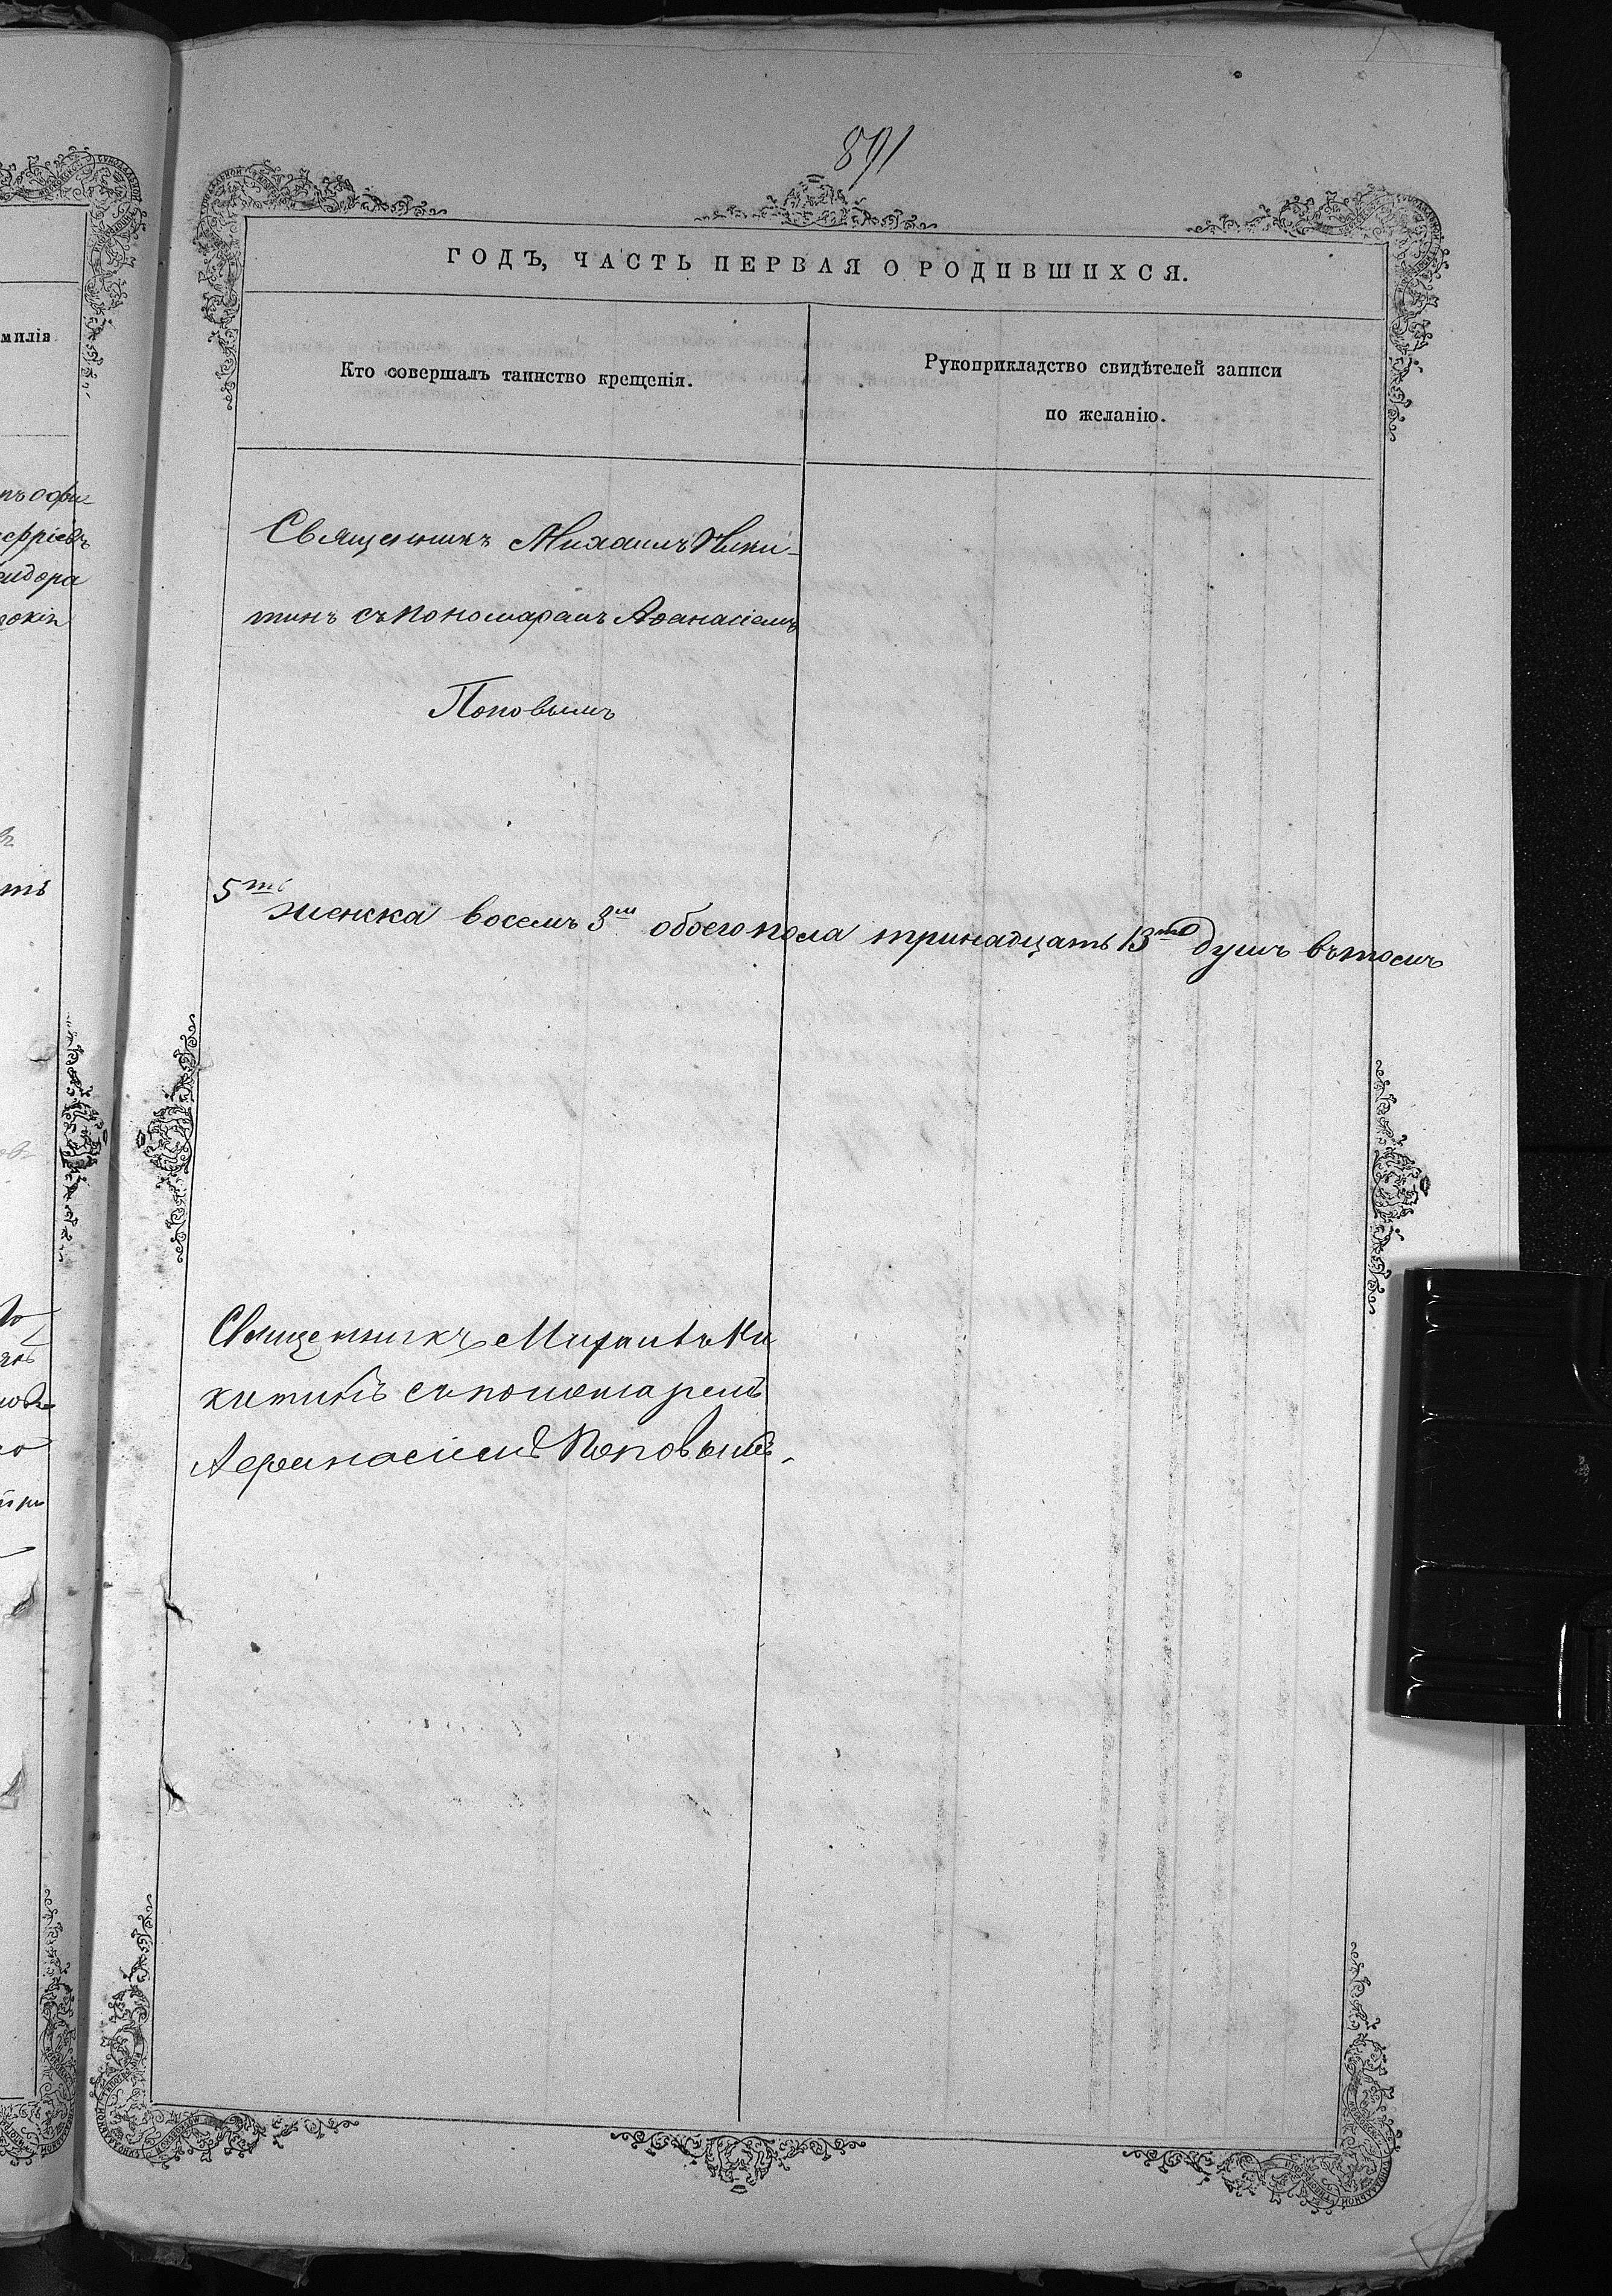 891
ГОДЪ, ЧАСТЬ ПЕРВАЯ О РОДИВШИХСЯ.
милія.
Кто совершалъ таинство крещенія.
Рукоприкладство свидѣтелей записи
по желанію.
Священникъ Михаилъ Ники-
тинъ съ пономаремъ Аѳанасіемъ
Поповымъ
5ть женска восемь 8м обоего пола тринадцать 13то душъ въ томъ
Священникъ Михаилъ Ни
китинъ съ пономаремъ
Афанасіемъ Поповымъ.